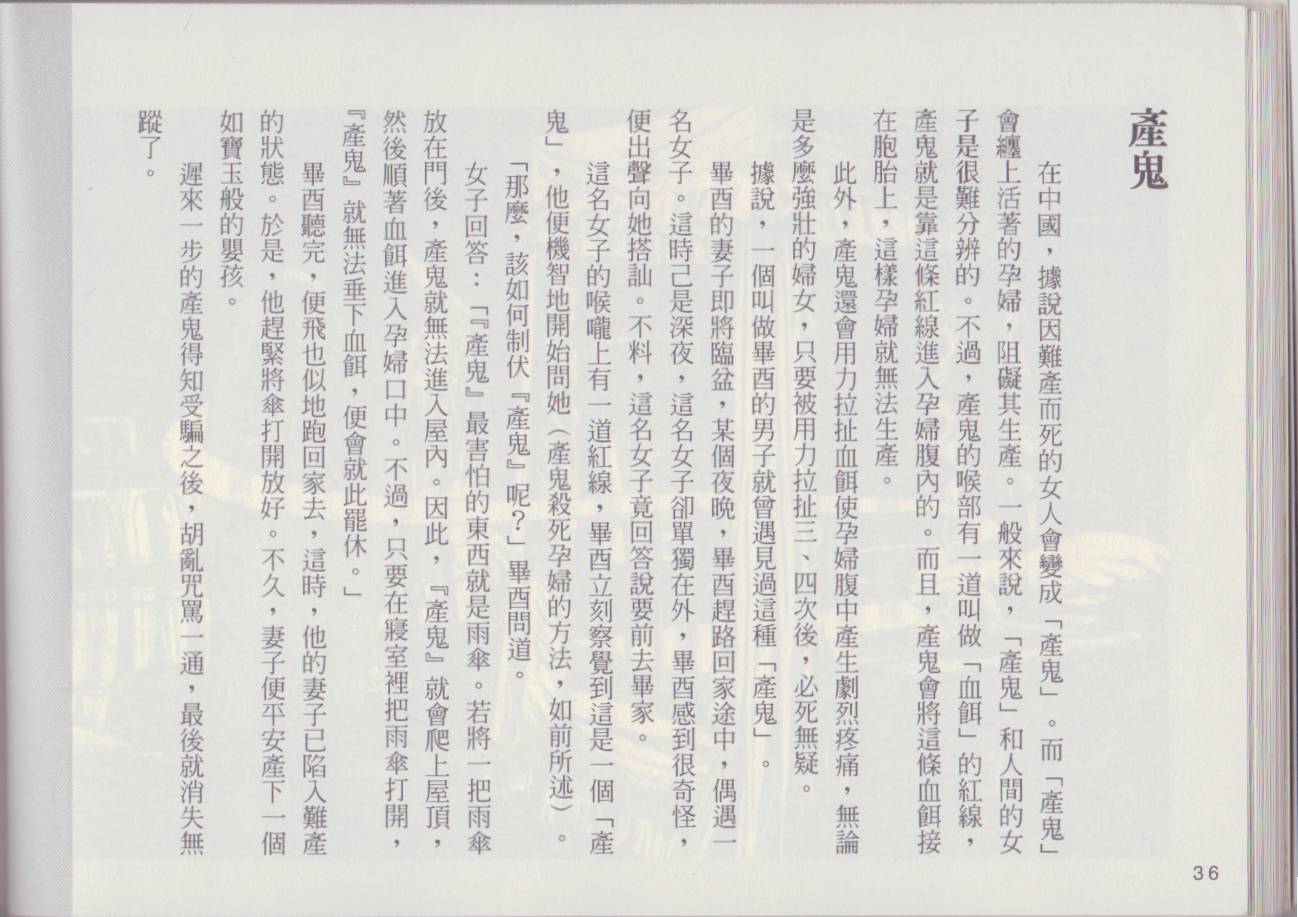 產鬼
在中國，據說因難產而死的女人會變成「產鬼」。而「產鬼」
會纏上活著的孕婦，阻礙其生產。一般來說，「產鬼」和人間的女
子是很難分辨的。不過，產鬼的喉部有一道叫做「血餌」的紅線，
產鬼就是靠這條紅線進入孕婦腹內的。而且，產鬼會將這條血餌接
在胞胎上，這樣孕婦就無法生產。
此外，產鬼還會用力拉扯血餌使孕婦腹中產生劇烈疼痛，無論
是多麼強壯的婦女，只要被用力拉扯三、四次後，必死無疑。
據說，一個叫做畢酉的男子就曾遇見過這種「產鬼」。
畢酉的妻子即將臨盆，某個夜晚，畢酉趕路回家途中，偶遇一
名女子。這時己是深夜，這名女子卻單獨在外，畢酉感到很奇怪，
便出聲向她搭訕。不料，這名女子竟回答說要前去畢家。
這名女子的喉嚨上有一道紅線，畢酉立刻察覺到這是一個「產
鬼」，他便機智地開始問她（產鬼殺死孕婦的方法，如前所述）。
「那麼，該如何制伏『產鬼』呢？」畢酉問道。
女子回答：「『產鬼』最害怕的東西就是雨傘。若將一把雨傘
放在門後，產鬼就無法進入屋內。因此，『產鬼』就會爬上屋頂，
然後順著血餌進入孕婦口中。不過，只要在寢室裡把雨傘打開，
『產鬼』就無法垂下血餌，便會就此罷休。」
畢酉聽完，便飛也似地跑回家去，這時，他的妻子已陷入難產
的狀態。於是，他趕緊將傘打開放好。不久，妻子便平安產下一個
如寶玉般的嬰孩。
遲來一步的產鬼得知受騙之後，胡亂咒罵一通，最後就消失無
蹤了。
36